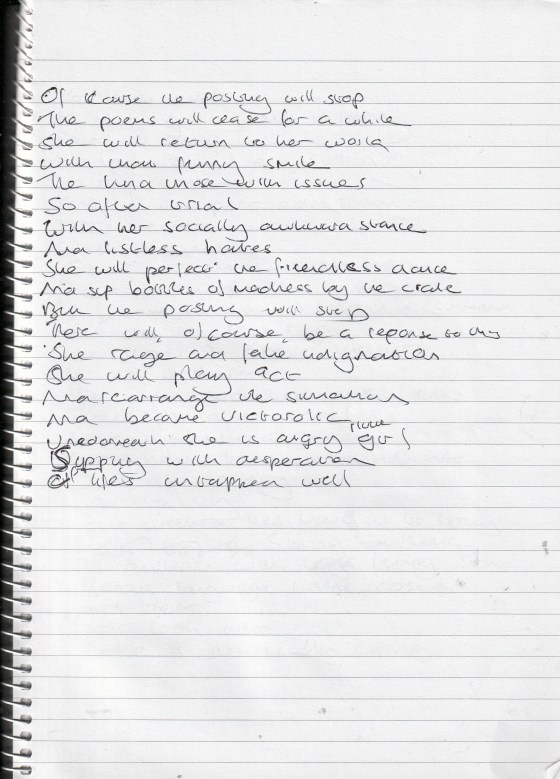 Of course the posting will stop
The poems will cease for a while
She will return to her world
With that funny smile
The kind with issues
So after
With her socially awkward stance
And listless
She will perfect the friendless dance
And sup bottles of madness by the crate
But the posting will stop
There will, of course, be a reponse to this
She rage and fake indignation
She will play act
And rearrange the situation
And become
Underneath she is angry little girl
Supping with desperation
At life's untapped well